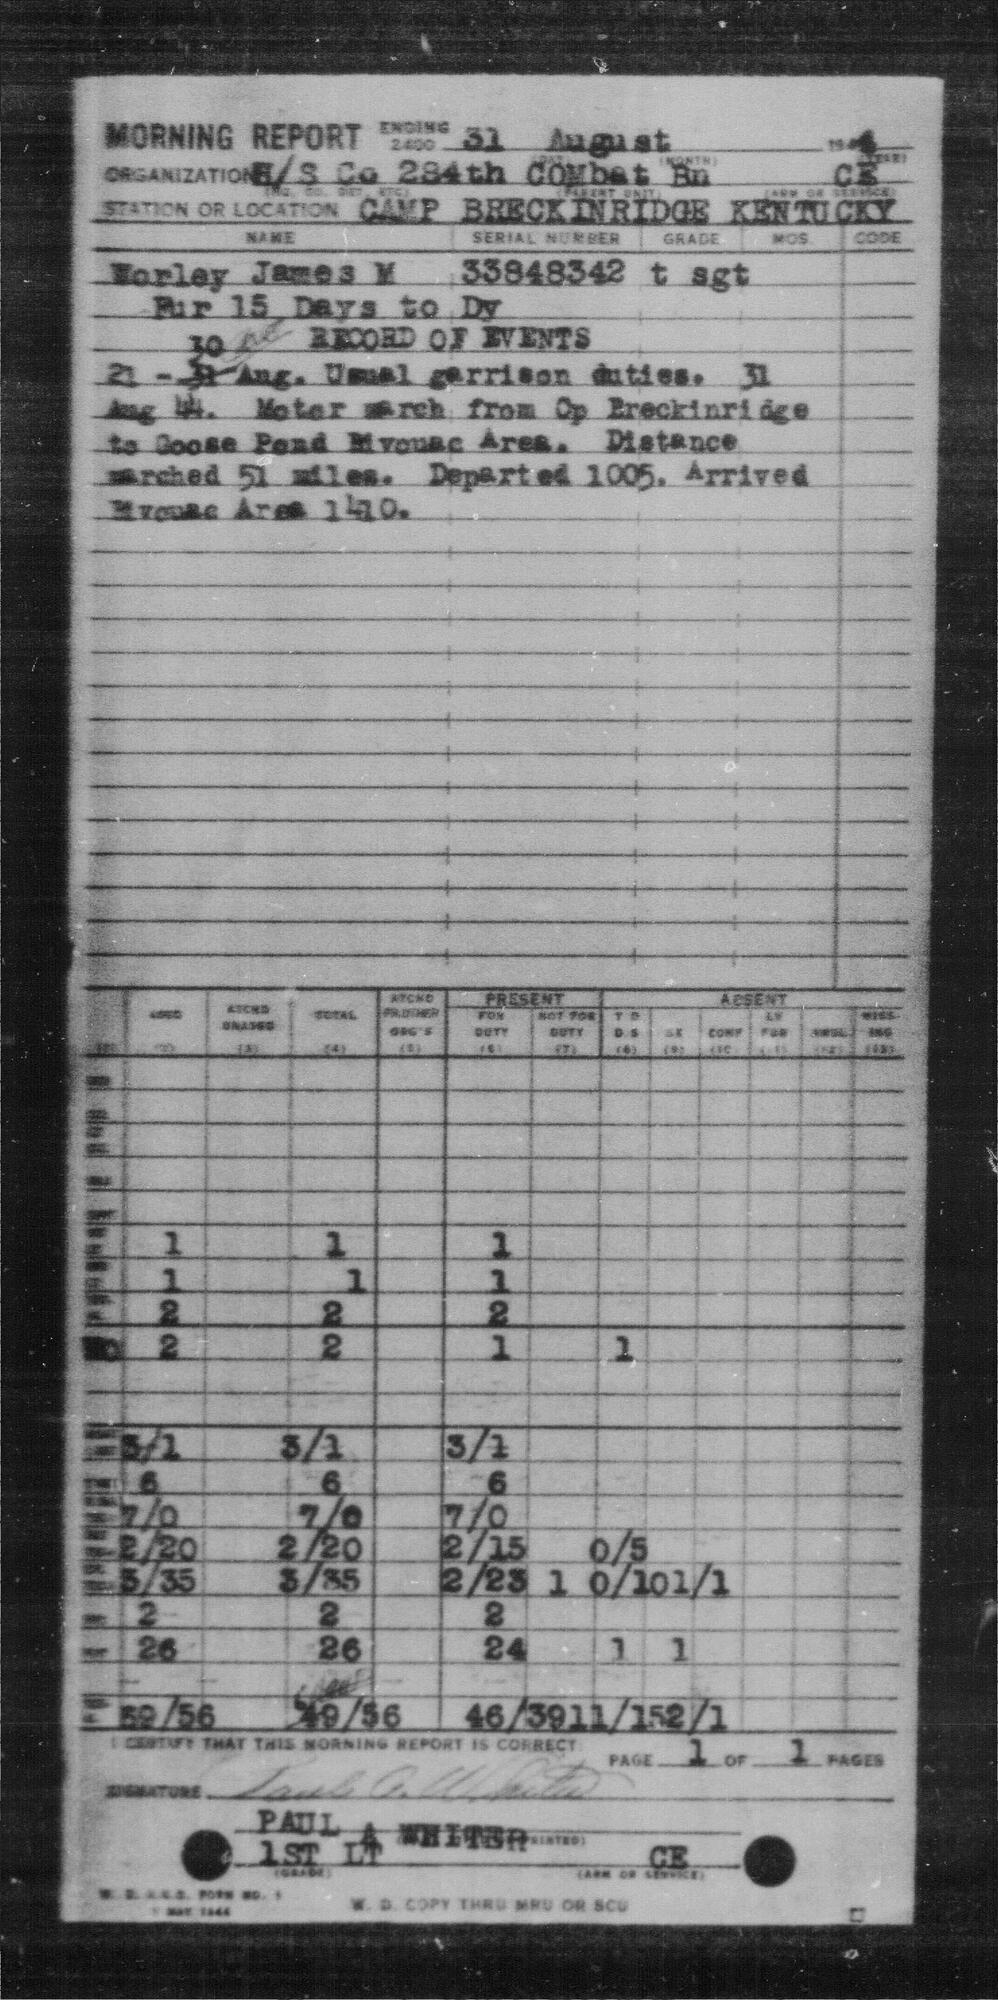 MORNING REPORT ENDING 2400 31 August 1944
(DAY) (MONTH) (YEAR)
ORGANIZATION H/S Co 284th COMbat Bn CE
(PARENT UNIT) (ARM OR SERVICE)
STATION OR LOCATION CAMP BRECKINRIDGE KENTUCKY
NAME SERIAL NUMBER GRADE MOS. CODE
Worley James M 33848342 t sgt
Fur 15 Days to Dy
30 RECORD OF EVENTS
21 - 31 Aug. Usual garrison duties. 31
Aug 44. Motor march from Cp Breckinridge
to Goose Pond Bivouac Area. Distance
marched 51 miles. Departed 1005. Arrived
Bivouac Area 1410.
PRESENT ABSENT
ASGD ATCHD UNASGD TOTAL ATCHD FR OTHER ORG'S FOR DUTY NOT FOR DUTY T D D S SK CONF LV FUR AWOL MISS- ING
(2) (3) (4) (5) (6) (7) (8) (9) (10) (11) (12) (13)
1 1 1
1 1 1
2 2 2
2 2 1 1
3/1 3/1 3/1
6 6 6
7/0 7/0 7/0
2/20 2/20 2/15 0/5
3/35 3/35 2/23 1 0/10 1/1
2 2 2
26 26 24 1 1
/56 49/56 46/39 1 1/15 2/1
I CERTIFY THAT THIS MORNING REPORT IS CORRECT:
PAGE 1 OF 1 PAGES
SIGNATURE Paul A. Whiter
PAUL A WHITER
1ST LT CE
(GRADE) (ARM OR SERVICE)
W. D. A.G.O. FORM NO. 1
1 MAY 1944
W. D. COPY THRU MRU OR SCU